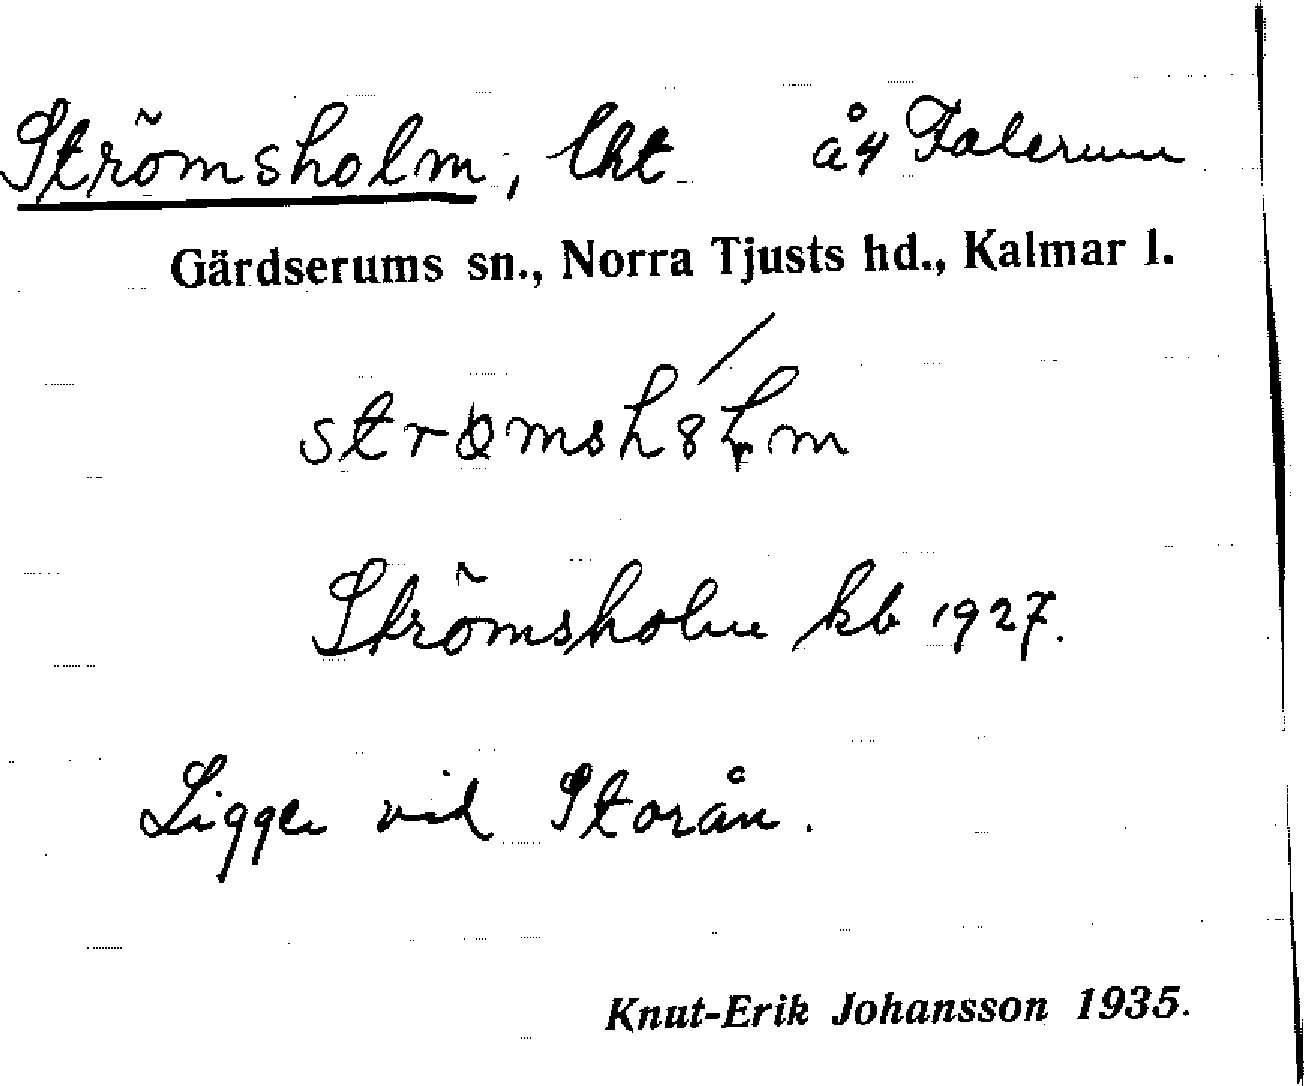 Strömsholm, lht å4 Falerum
Gärdserums sn., Norra Tjusts hd., Kalmar l.
Strömsholm kb 1927.
Ligger vid Storån.
Knut-Erik Johansson 1935.